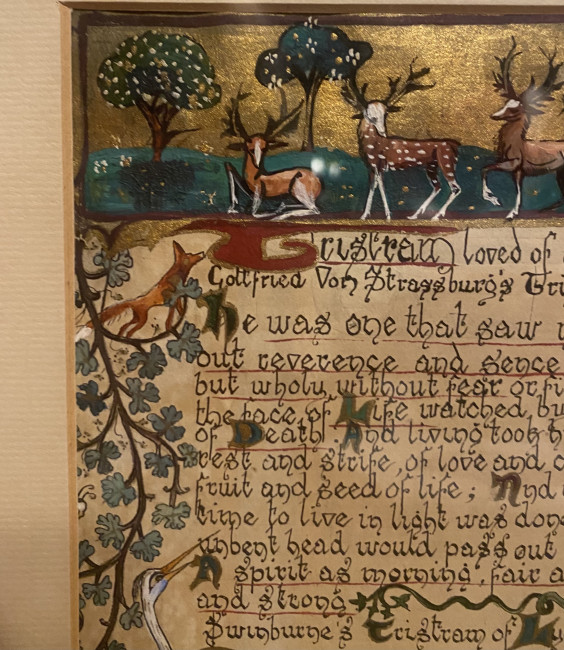 Tristram loved of
Gottfried Von Strassburg's
He was one that saw
out reverence and sence
but wholy without fear or
the face of Life watched,
of Death And living took
rest and strife, of love and
fruit and seed of life; And
time to live in light was done
unbent head would pass out
A spirit as morning, fair
and strong
Swinburne's Tristram of